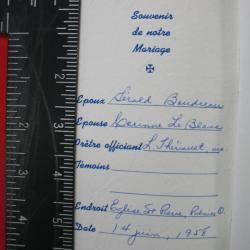 Souvenir
de notre
Mariage
Epoux Gérald Boudreau
Epouse Corinne Le Blanc
Prêtre officiant L. Thériault,
Témoins
Endroit Eglise St Pierre,
Date 14 juin, 1958
1
2
3
4
5